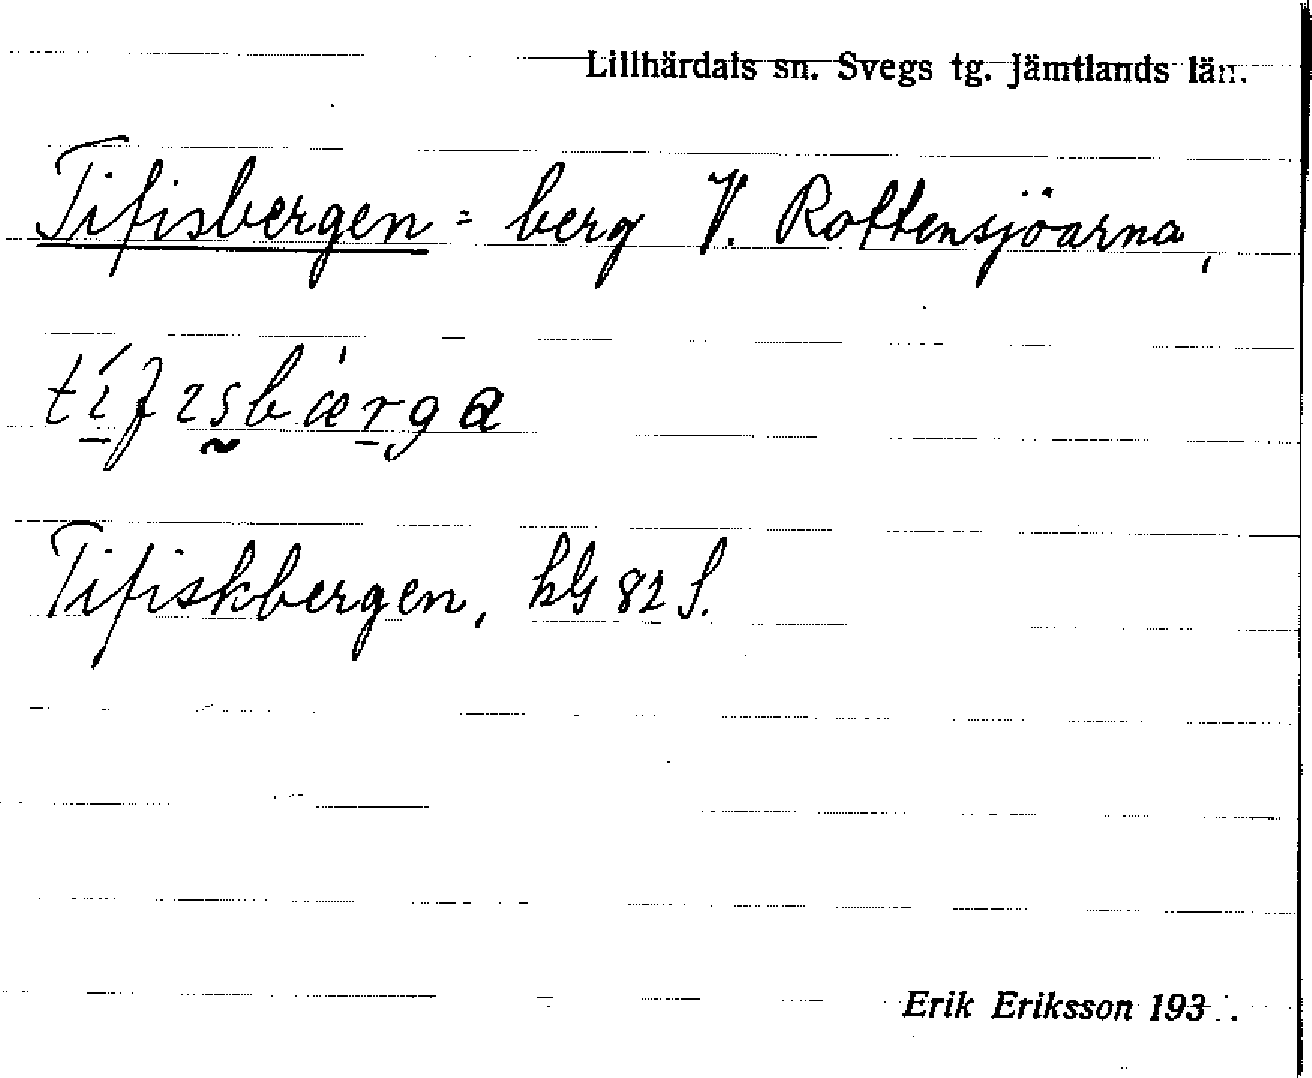 Lillhärdals sn. Svegs tg. Jämtlands län.
Tifisbergen = berg V. Rottensjöarna,
tífısbæ̀rga
Tifiskbergen, kbl 82 S.
Erik Eriksson 193 .